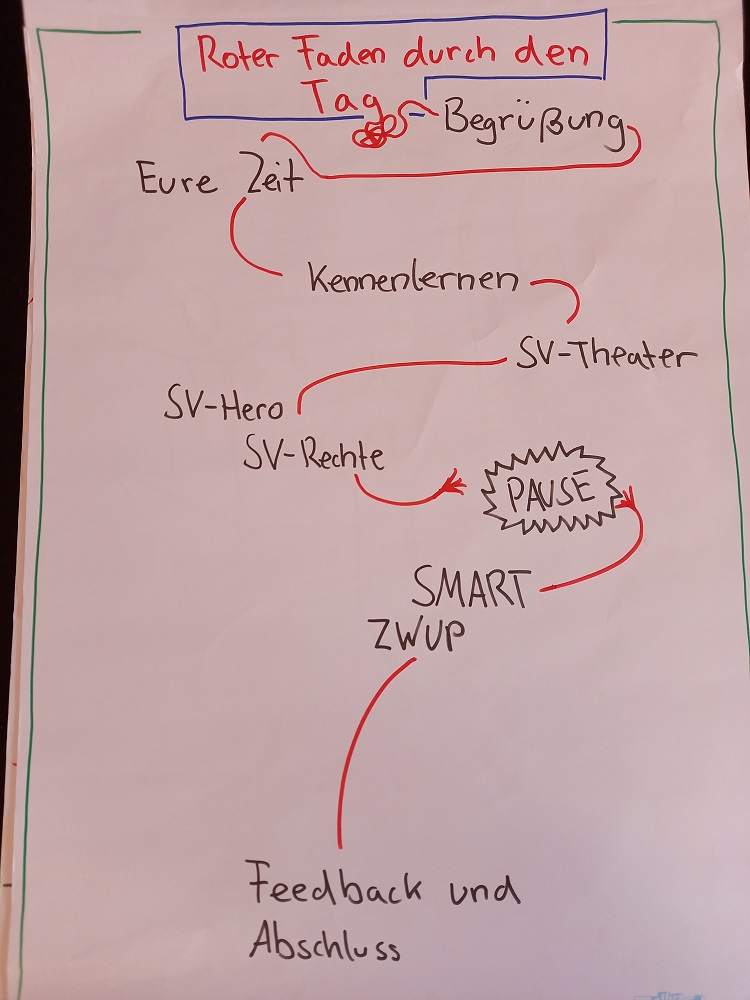 Roter Faden durch den
Tag
Begrüßung
Eure Zeit
Kennenlernen
SV-Theater
SV-Hero
SV-Rechte
PAUSE
SMART
ZWUP
Feedback und
Abschluss